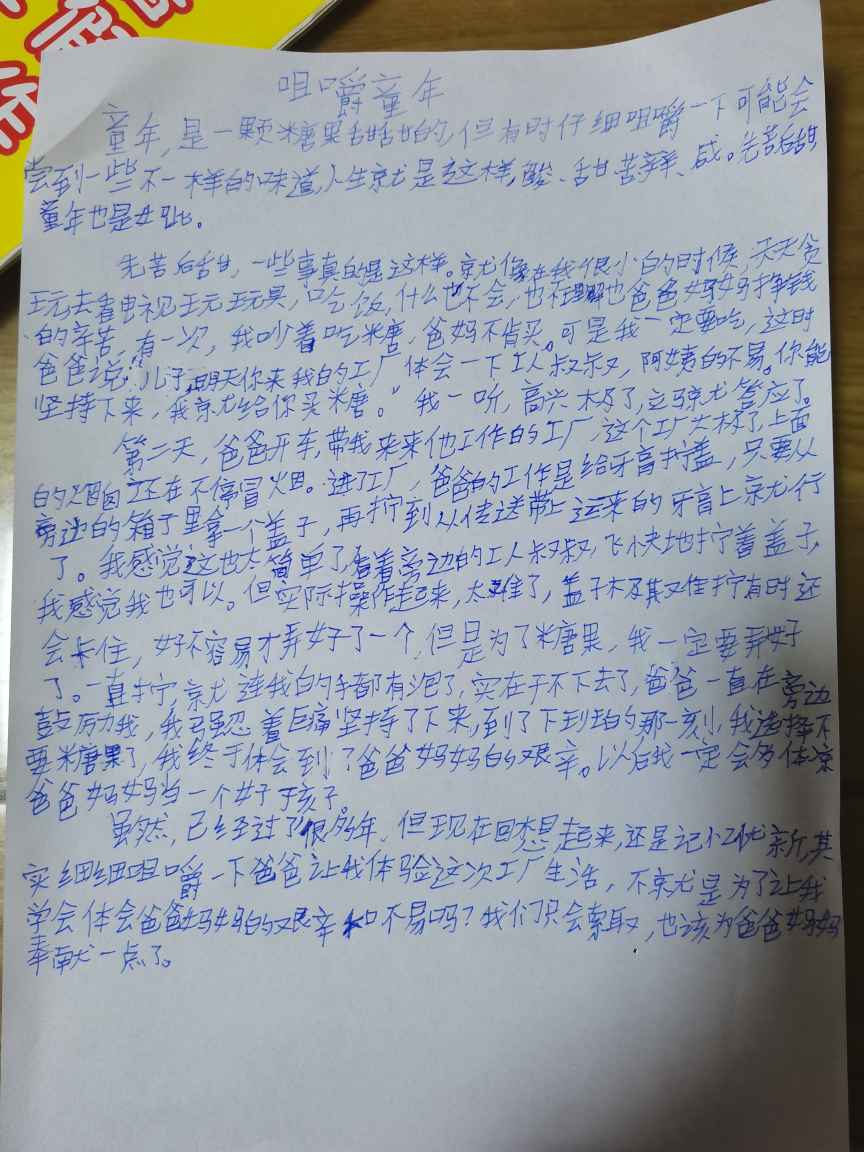 咀嚼童年
童年,是一颗糖果甜甜的,但有时仔细咀嚼一下可能会
尝到一些不一样的味道,人生就是这样,酸、甜苦辣、咸。先苦后甜
童年也是如此。
先苦后甜,一些事真的是这样。就像在我很小的时候,天天贪
玩去看电视玩玩具,吃饭,什么也不会,也不理解也爸爸妈妈挣钱
的辛苦,有一次,我吵着吃糖,爸妈不肯买。可是我一定要吃,这时
爸爸说:“儿子,明天你来我的工厂体会一下工人叔叔,阿姨的不易。你能
坚持下来,我就给你买糖。”我一听,高兴极了,立马就答应了。
第二天,爸爸开车,带我来来他工作的工厂,这个工厂大极了,上面
的烟囱还在不停冒烟。进了工厂,爸爸的工作是给牙膏拧盖,只要从
旁边的箱子里拿一个盖子,再拧到从传送带上运来的牙膏上就行
了。我感觉这也太简单了,看着旁边的工人叔叔,飞快地拧着盖子,
我感觉我也可以。但实际操作起来,太难了,盖子极其难拧有时还
会卡住,好不容易才弄好了一个,但是为了糖果,我一定要弄好
了。一直拧,就连我的手都有泡了,实在干不下去了,爸爸一直在旁边
鼓励我,我强忍着巨痛坚持了下来,到了下班的那一刻,我选择不
要糖果了,我终于体会到了爸爸妈妈的艰辛。以后我一定会多体凉
爸爸妈妈当一个好孩子。
虽然,已经过了很多年,但现在回想起来,还是记忆忧新,其
实细细咀嚼一下爸爸让我体验这次工厂生活,不就是为了让我
学会体会爸爸妈妈的艰辛和不易吗?我们只会索取,也该为爸爸妈妈
奉献一点了。